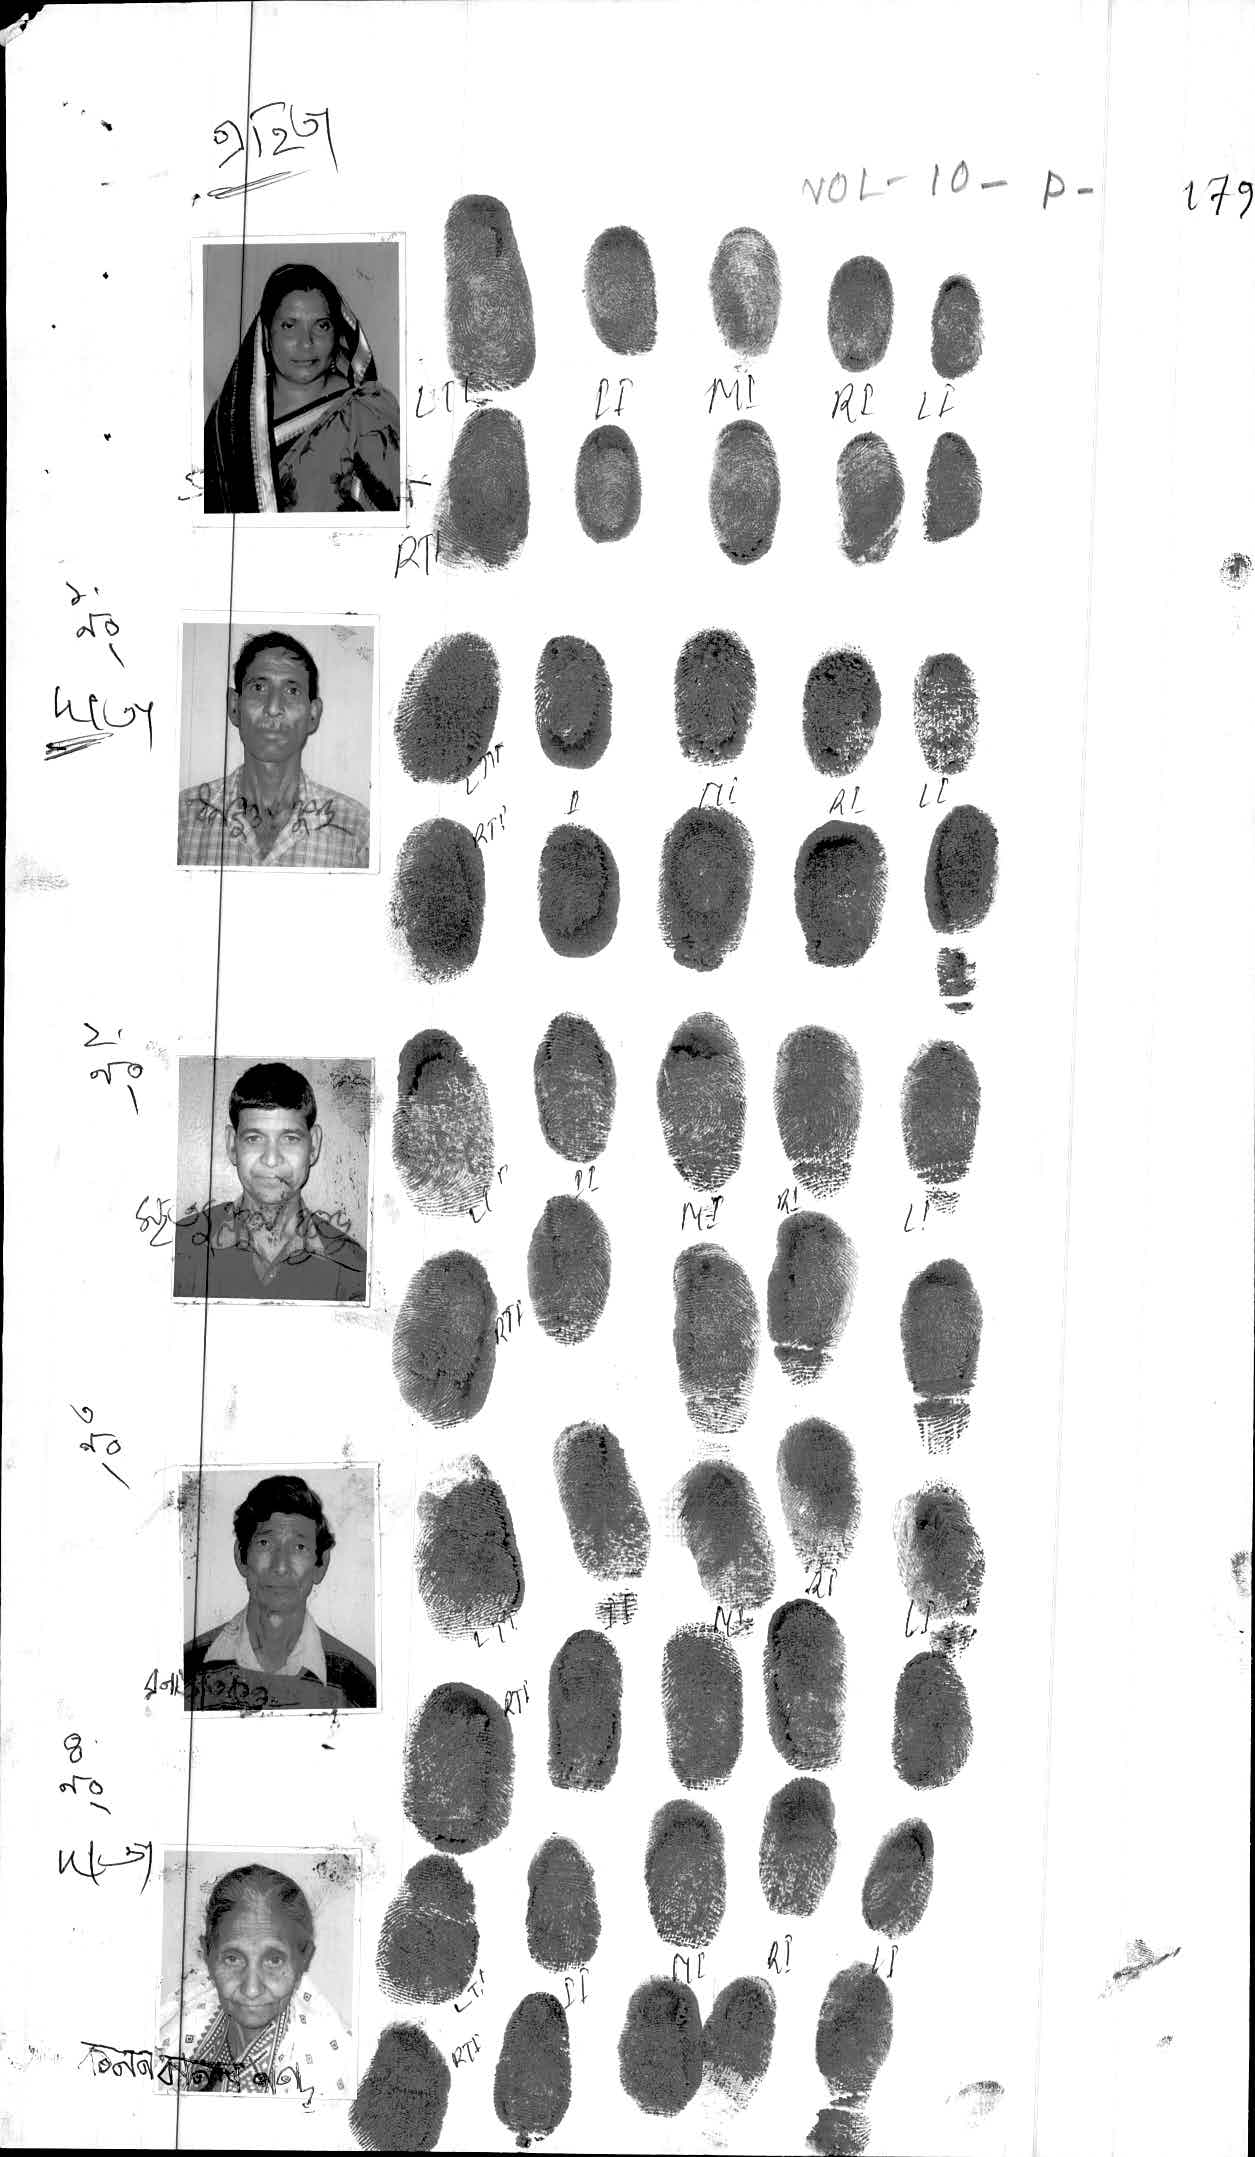 গ্রহিতা
VOL- 10 - P- 179
LTI II MI RI LI
RTI
১.
নং
দাতা
LTI I MI RI LI
RTI
২.
নং
LTI II MI RI LI
RTI
৩
নং
LTI II MI RI LI
RTI
৪.
নং
দাতা
LTI II MI RI LI
RTI